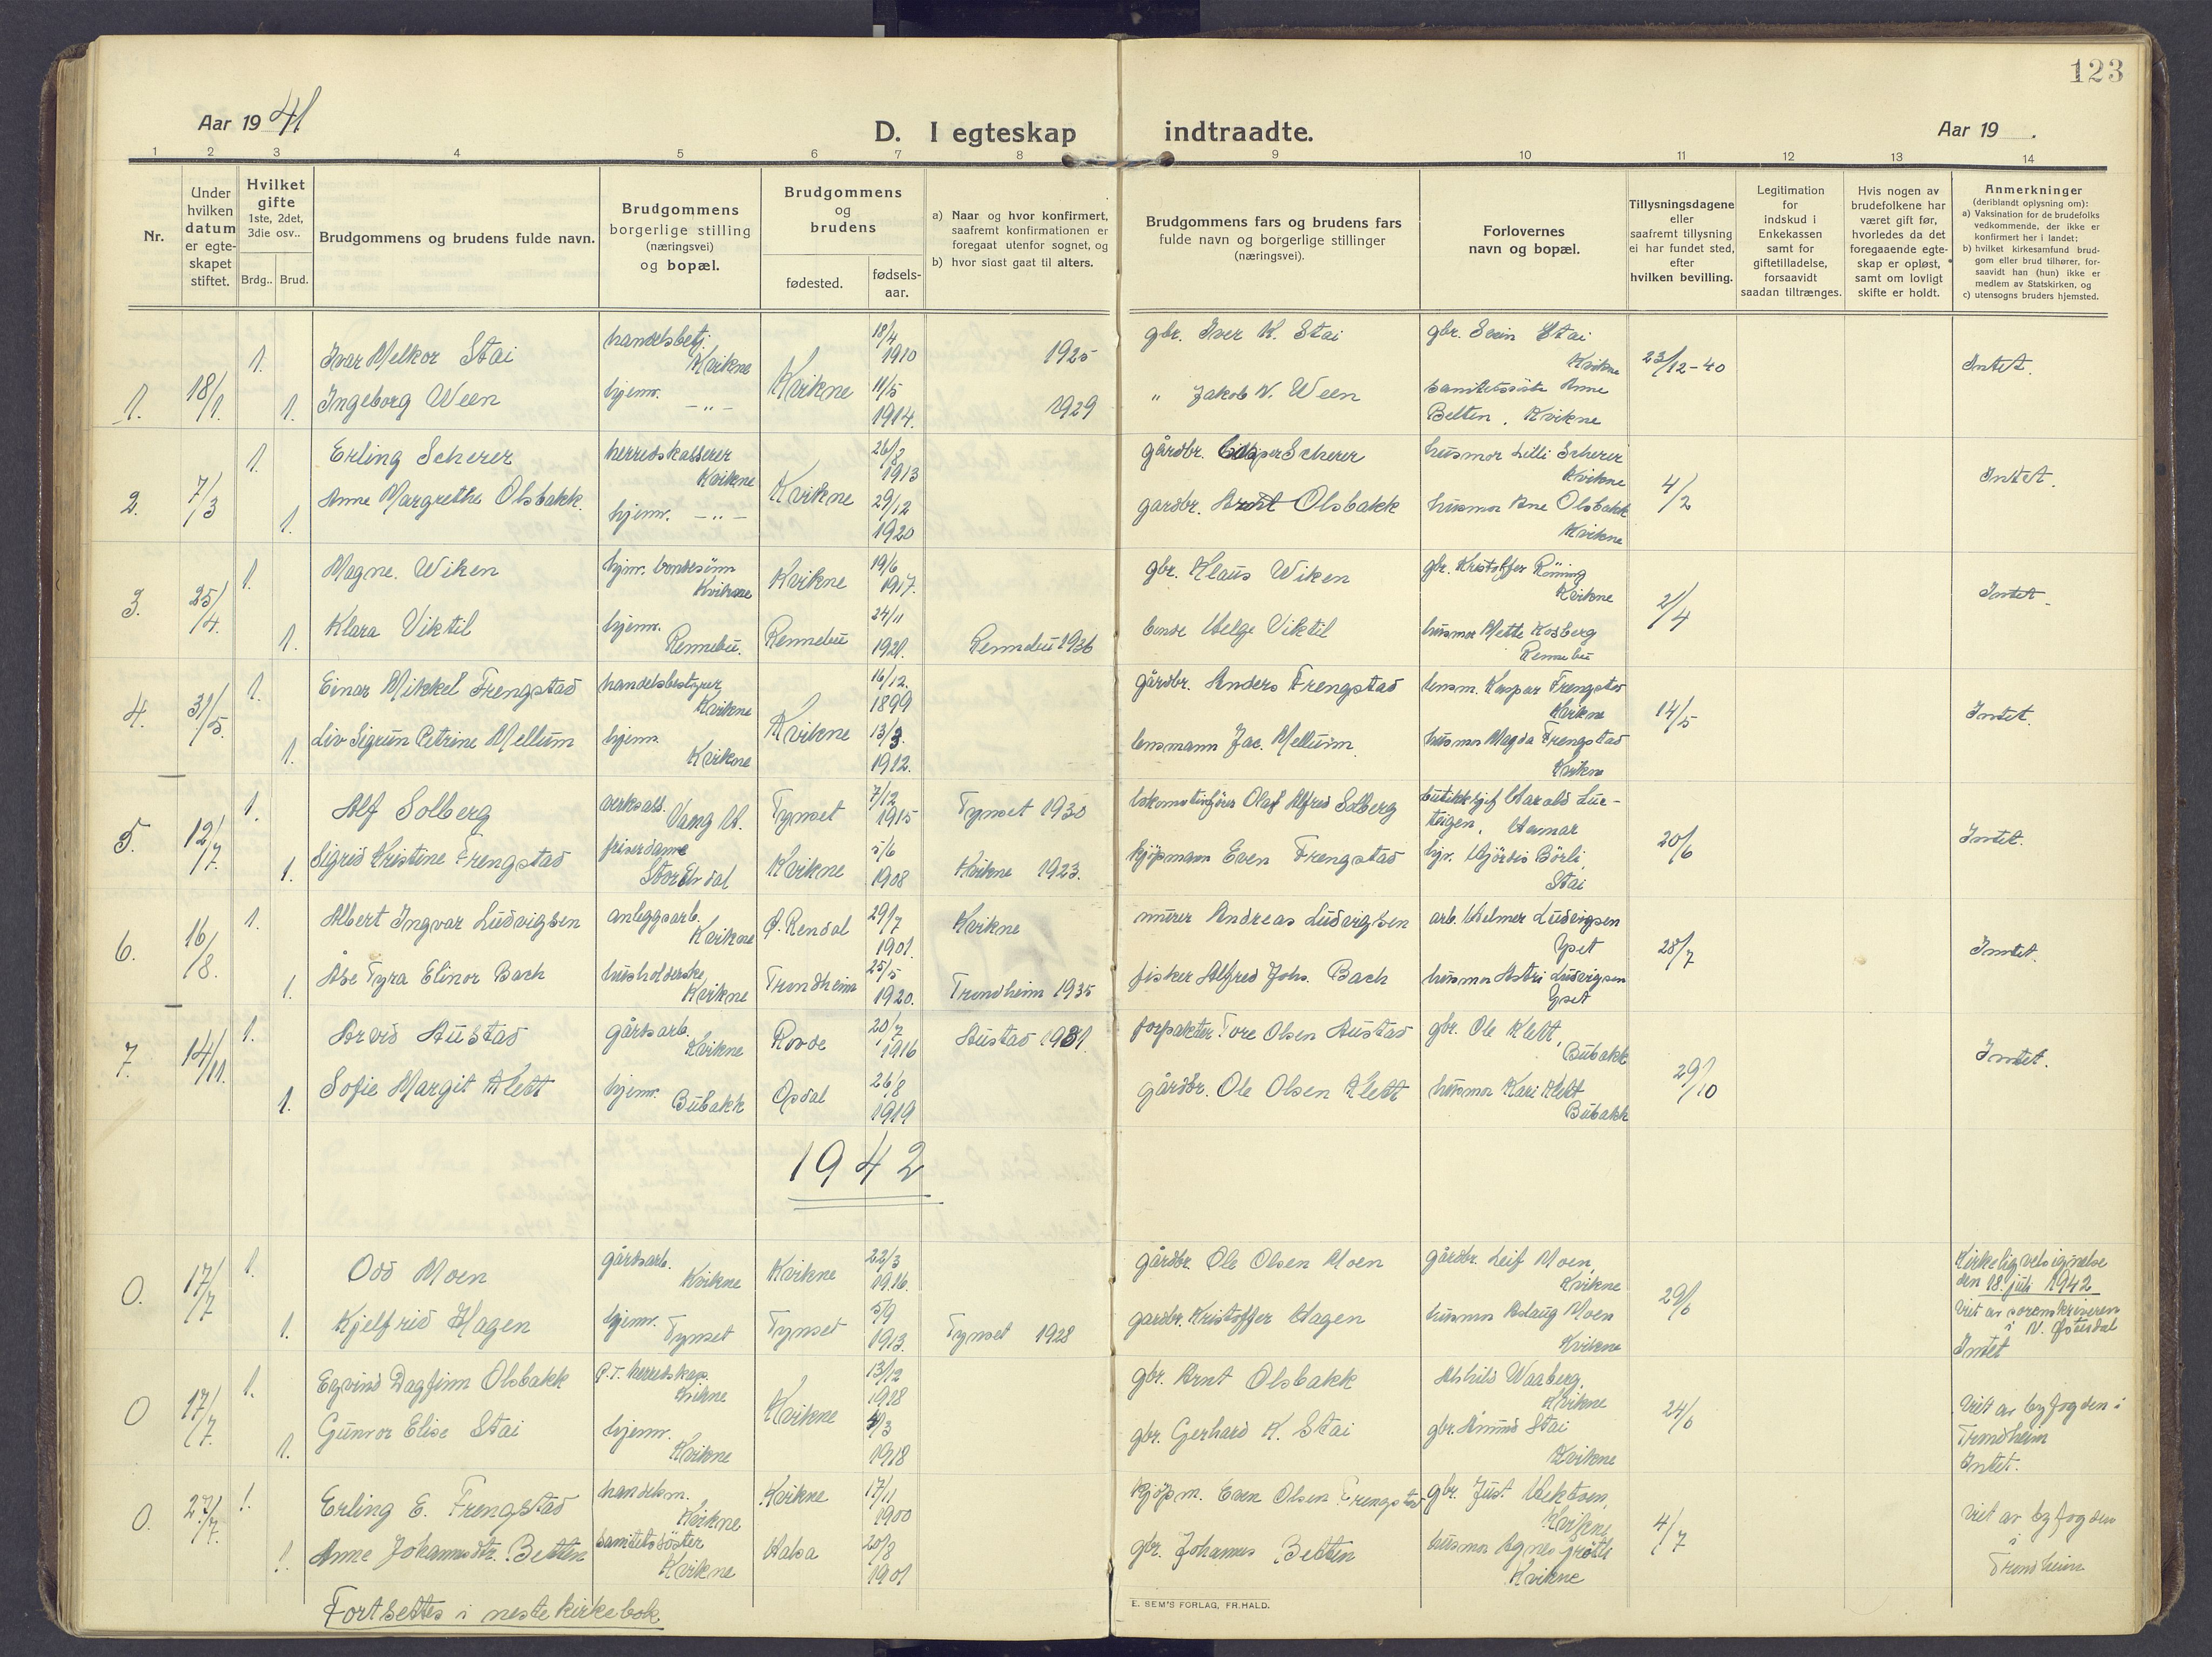 123
Aar 19 41
D. I egteskap indtraadte.
Aar 19 .
1 2 3 4 5 6 7 8 9 10 11 12 13 14
Nr.
Under
hvilken
datum
er egte-
skapet
stiftet.
Hvilket
gifte
1ste, 2det,
3die osv..
Brdg.. Brud.
Brudgommens og brudens fulde navn.
Brudgommens
borgerlige stilling
(næringsvei)
og bopæl.
Brudgommens
og
brudens
fødested.
fødsels-
aar.
a) Naar og hvor konfirmert,
saafremt konfirmationen er
foregaat utenfor sognet, og
b) hvor sidst gaat til alters.
Brudgommens fars og brudens fars
fulde navn og borgerlige stillinger
(næringsvei).
Forlovernes
navn og bopæl.
Tillysningsdagene
eller
saafremt tillysning
ei har fundet sted,
efter
hvilken bevilling.
Legitimation
for
indskud i
Enkekassen
samt for
giftetilladelse,
forsaavidt
saadan tiltrænges.
Hvis nogen av
brudefolkene har
været gift før,
hvorledes da det
foregaaende egte-
skap er opløst,
samt om lovligt
skifte er holdt.
Anmerkninger
(deriblandt oplysning om):
a) Vaksination for de brudefolks
vedkommende, der ikke er
konfirmert her i landet;
b) hvilket kirkesamfund brud-
gom eller brud tilhører, for-
saavidt han (hun) ikke er
medlem av Statskirken, og
c) utensogns bruders hjemsted.
1. 18/1. 1. Ivar Melkor Stai handelsbetj. Kvikne Kvikne 18/4 1910 1925 gbr. Iver K. Stai gbr. Svein Stai Kvikne 23/12-40 Intet.
1. Ingeborg Ween hjemv. -"- 11/5 1914. 1929 " Jakob N. Ween Anne Betten, Kvikne
2. 7/3 1. Erling Scherer herredskasserer Kvikne Kvikne 1913 gårdbr. Scherer husmor Lilli Scherer Kvikne 4/2 Intet.
1. Anne Margrethe Olsbakk. hjemv. -"- 29/12 1920 gardbr. Arnt Olsbakk husmor Ane Olsbakk Kvikne
3. 25/4. 1. Magne. Wiken hjmv. bondesønn Kvikne Kvikne 19/6 1917. gbr. Klaus Wiken gbr. Kristoffer Röning Kvikne 2/4 Intet.
1. Klara Viktil hjemv. Rennebu. Rennebu 24/11 1921. Rennebu 1936 bonde Helge Viktil husmor Mette Kosberg Rennebu
4. 31/5. 1. Einar Mikkel Frengstad handelsbestyrer Kvikne Kvikne 16/12. 1899 gårdbr. Anders Frengstad lensm. Kaspar Frengstad Kvikne 14/5 Intet.
1. Liv Sigrun Petrine Mellum hjemv. Kvikne 13/3. 1912. lensmann Jac. Mellum husmor Magda Frengstad Kvikne
5. 12/7. 1. Alf Solberg Vang H. Tynset 7/12 1915 Tynset 1930 lokomotivfører Olaf Alfred Solberg Harald Lue- Hamar 20/6 Intet.
1. Sigrid Kristine Frengstad friserdame Stor Elvdal Kvikne 5/6 1908 Kvikne 1923. kjöpmann Even Frengstad hjv. Hjördis Börli, Stai
6. 16/8. 1. Albert Ingvar Ludvigsen anleggsarb. Kvikne Ø. Rendal 29/7 1901. Kvikne murer Andreas Ludvigsen arb. Helmer Ludvigsen Yset 28/7 Intet.
1. Åse Tyra Elinor Bach husholderske Kvikne Trondheim 25/5 1920. Trondheim 1935 fisker Alfred Johs. Bach husmor Astri Ludvigsen Yset
7. 14/11. 1. Arvid Austad gårdsarb. Kvikne Rovde 20/7 1916 Austad 1931. forpakter Tore Olsen Austad gbr. Ole Klett, Bubakk 29/10 Intet.
1. Sofie Margit Klett hjemv. Bubakk Opdal 26/8 1919 gårdbr. Ole Olsen Klett husmor Kari Klett Bubakk
1942
0. 17/7 1. Odd Moen gårdsarb. Kvikne Kvikne 22/3 1916. gårdbr. Ole Olsen Moen gårdbr. Leif Moen, Kvikne 29/6 Kirkelig velsignelse den 18. juli 1942 Viet av sorenskriveren i N. Østerdal Intet
1. Kjelfrid Hagen hjemv. Tynset Tynset 5/9 1913. Tynset 1928 gardbr. Kristoffer Hagen husmor Aslaug Moen Kvikne
0 17/7. 1. Eyvind Dagfinn Olsbakk Kvikne Kvikne 13/12 1918 gbr. Arnt Olsbakk Waaberg, Kvikne 24/6 Viet av byfogden i Trondheim Intet.
1. Gunvor Elise Stai hjemv. Kvikne 1918 gbr. Gerhard K. Stai gbr. Åmund Stai Kvikne
0. 27/7. 1. Erling E. Frengstad handelsm. Kvikne Kvikne 17/11 1900 kjöpm. Even Olsen Frengstad gbr. Just Kvikne 4/7 Viet av byfogden i Trondheim
1. Anne Johannesdtr. Betten sanitetssöster Kvikne Halsa 20/8 1901 gbr. Johannes Betten husmor Agnes Kvikne
Fortsettes i neste kirkebok
E. SEM'S FORLAG, FR.HALD.